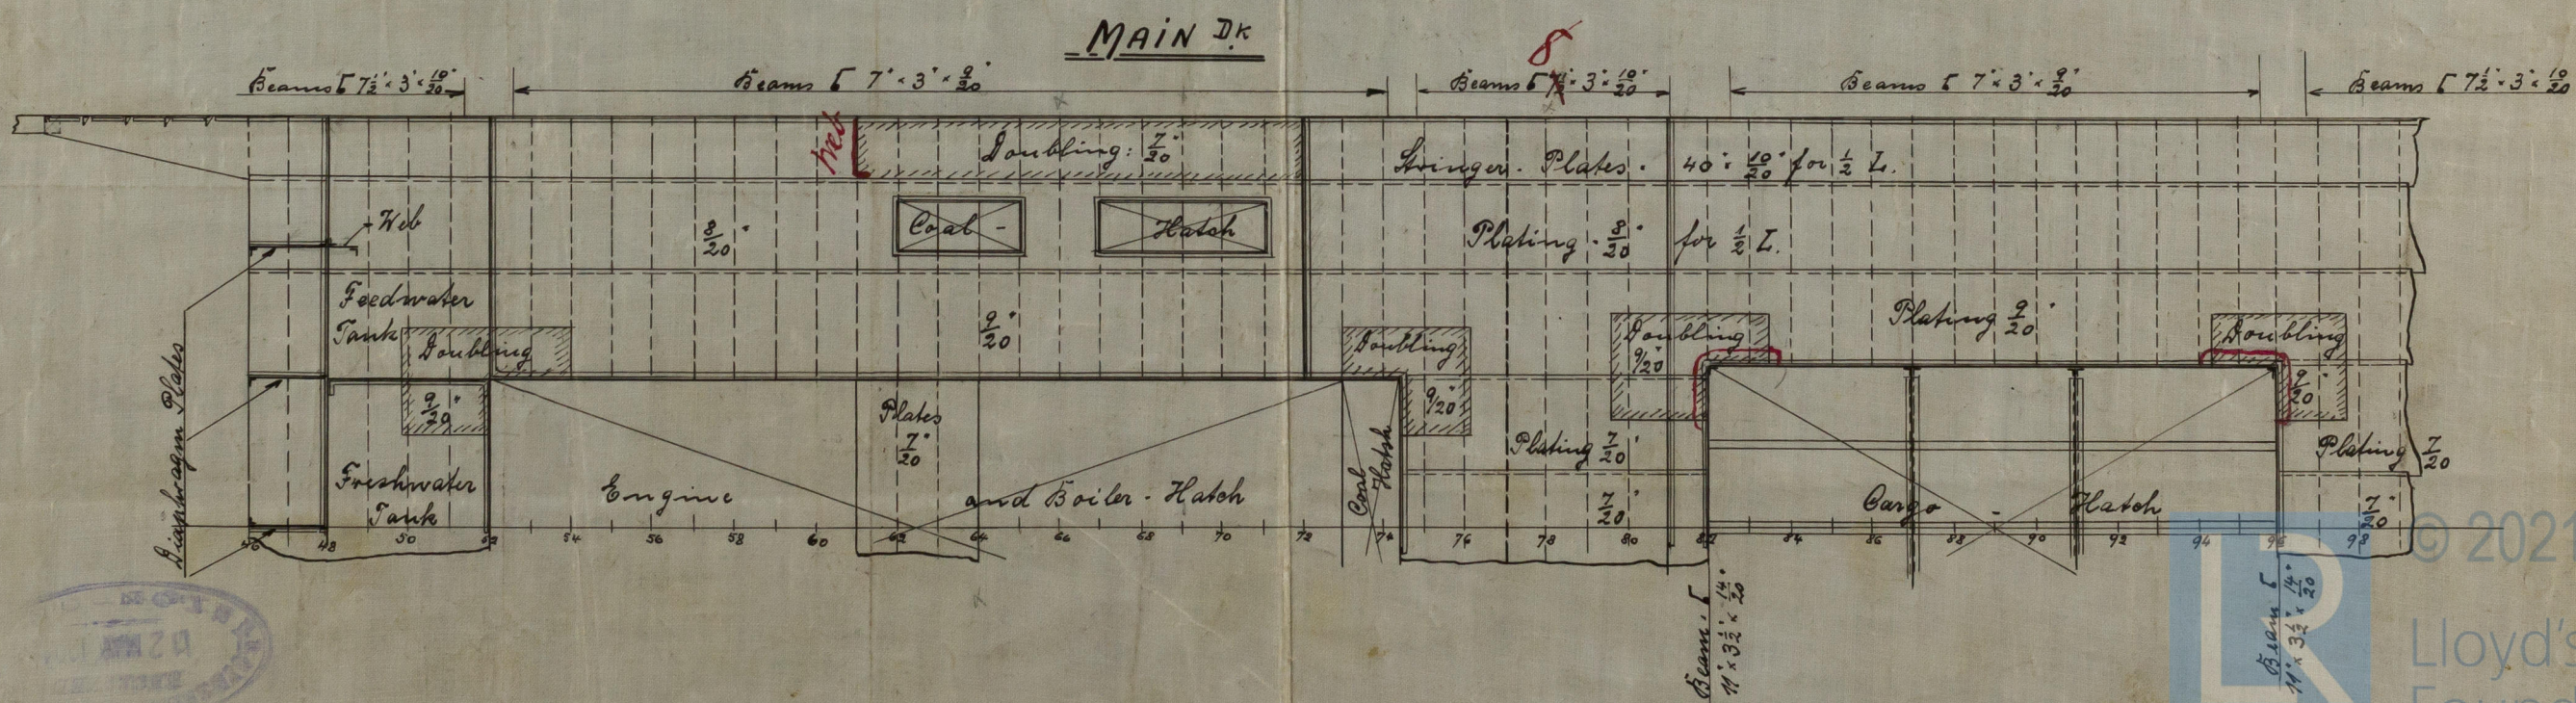 MAIN DK
8
Beams [ 7½" × 3" × 10/20"
Beams [ 7" × 3" × 9/20"
Beams [ 7½" × 3" × 10/20"
Beams [ 7" × 3" × 9/20"
Beams [ 7½" × 3" × 10/20
web
Doubling: 7/20"
Stringer - Plates - 40" × 10/20" for ½ L.
Web
8/20"
Coal - Hatch
Plating - 8/20" for ½ L.
Feedwater
Tank
Doubling
9/20"
9/20"
Doubling
9/20"
Doubling
9/20"
Plating 9/20"
Doubling
9/20"
Diaphragm Plates
Plates
7/20"
Plating 7/20"
Plating 7/20
Freshwater
Tank
Engine and Boiler - Hatch
Coal
Hatch
7/20"
Cargo - Hatch
7/20"
46 48 50 52 54 56 58 60 62 64 66 68 70 72 74 76 78 80 82 84 86 88 90 92 94 96 98
Beam. [
11" × 3½" × 14/20"
Beam [
11" × 3½" × 14/20"
© 2021
Lloyd's